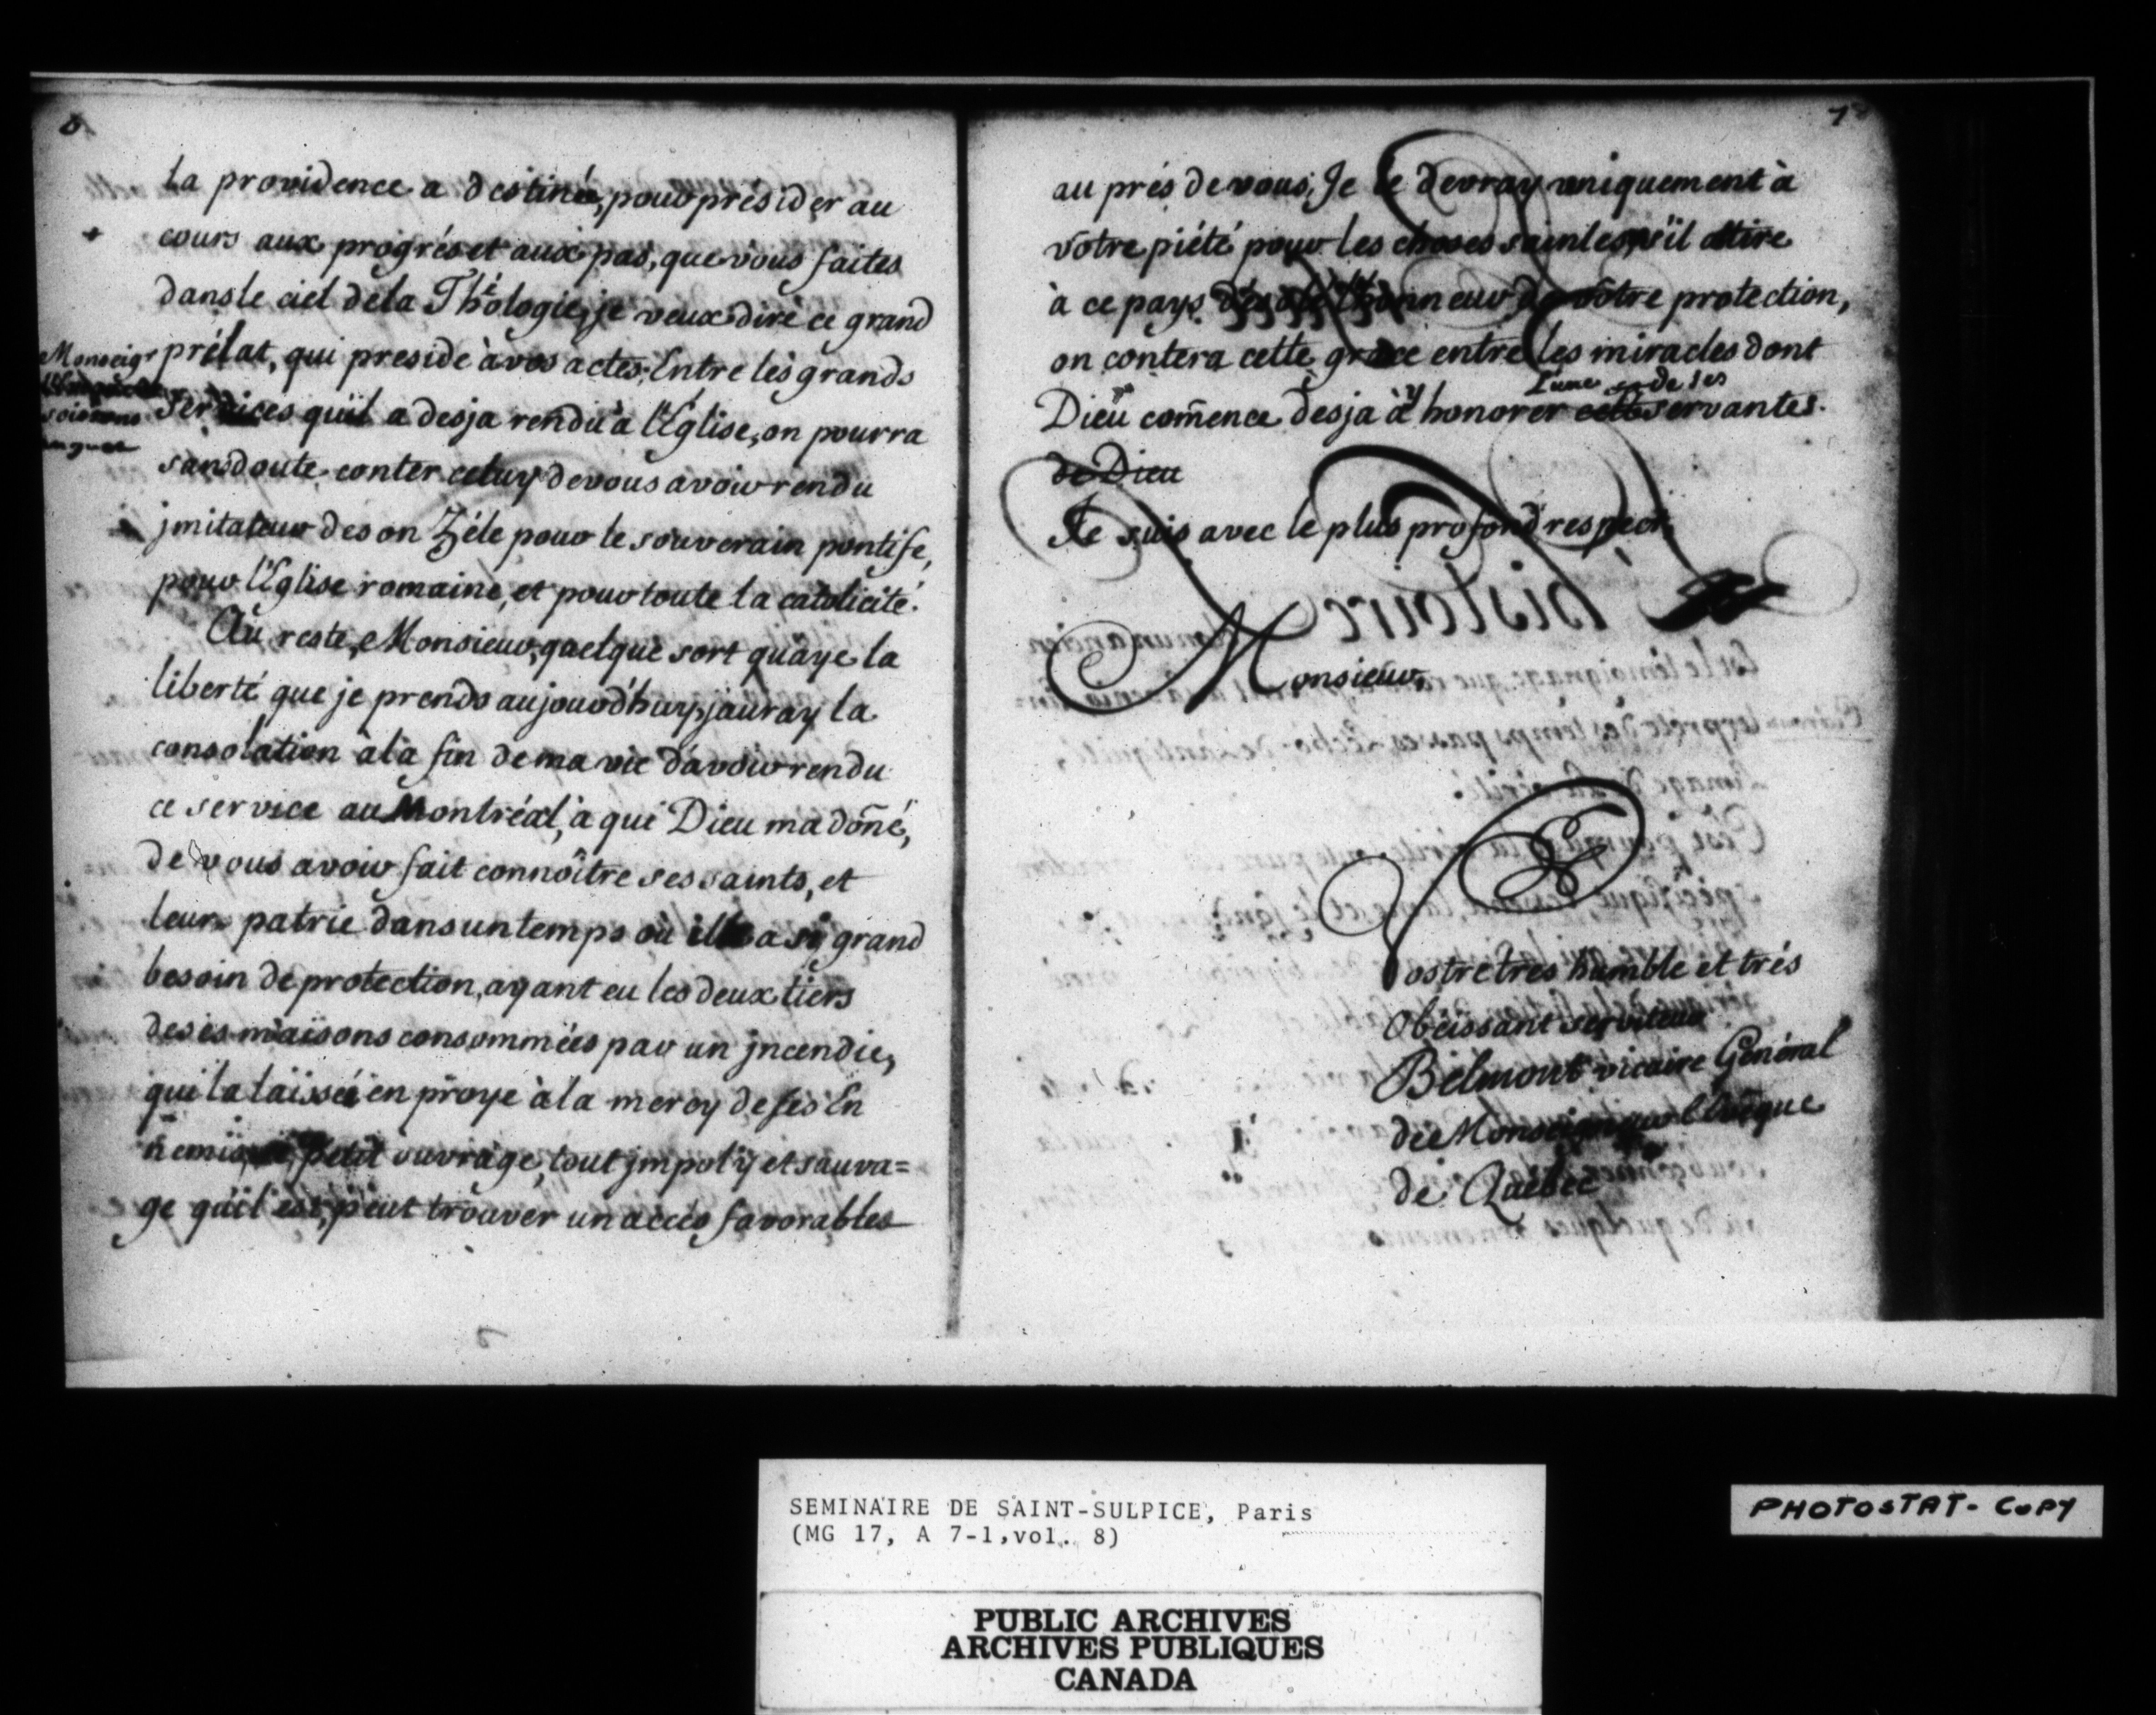 6.
la providence a destiné, pour présider au
cours aux progrés et aux pas, que vous faites
dans le ciel de la Théologie, je veux dire ce grand
prélat, qui preside à vos actes. Entre les grands
Monseigr
soissons
services qu'il a desja rendu à l'Eglise, on pourra
sans doute conter celuy de vous avoir rendu
jmitateur de son Zéle pour le souverain pontife,
pour l'Eglise romaine, et pour toute la catolicité.
Au reste, Monsieur, quelque sort qu'aye la
liberté que je prends aujourd'huy, j'auray la
consolation à la fin de ma vie d'avoir rendu
ce service au Montréal, à qui Dieu m'a doñé,
de vous avoir fait connoître ses saints, et
leur patrie dans un temps où elle a si grand
besoin de protection, ayant eu les deux tiers
de ses maisons consommées par un jncendie,
qui l'a laissée en proye à la mercy de ses En
nemis petit ouvrage, tout jmpoly et sauva=
ge qu'il est, peut trouver un accés favorables
7
au prés de vous, Je le devray uniquement à
votre piété pour les choses saintes, s'il attire
à ce pays désolé l'honneur de vôtre protection,
on contera cette grace entre les miracles dont
l'une de ses
Dieu com̃ence desja à y honorer cette servantes.
de Dieu
Je suis avec le plus profond respect
Monsieur,
Vostre tres humble et trés
obéissant serviteur
Belmont vicaire Général
de Monseigneur l'Evéque
de Québec
SEMINAIRE DE SAINT-SULPICE, Paris
(MG 17, A 7-1, vol. 8)
PHOTOSTAT - COPY
PUBLIC ARCHIVES
ARCHIVES PUBLIQUES
CANADA